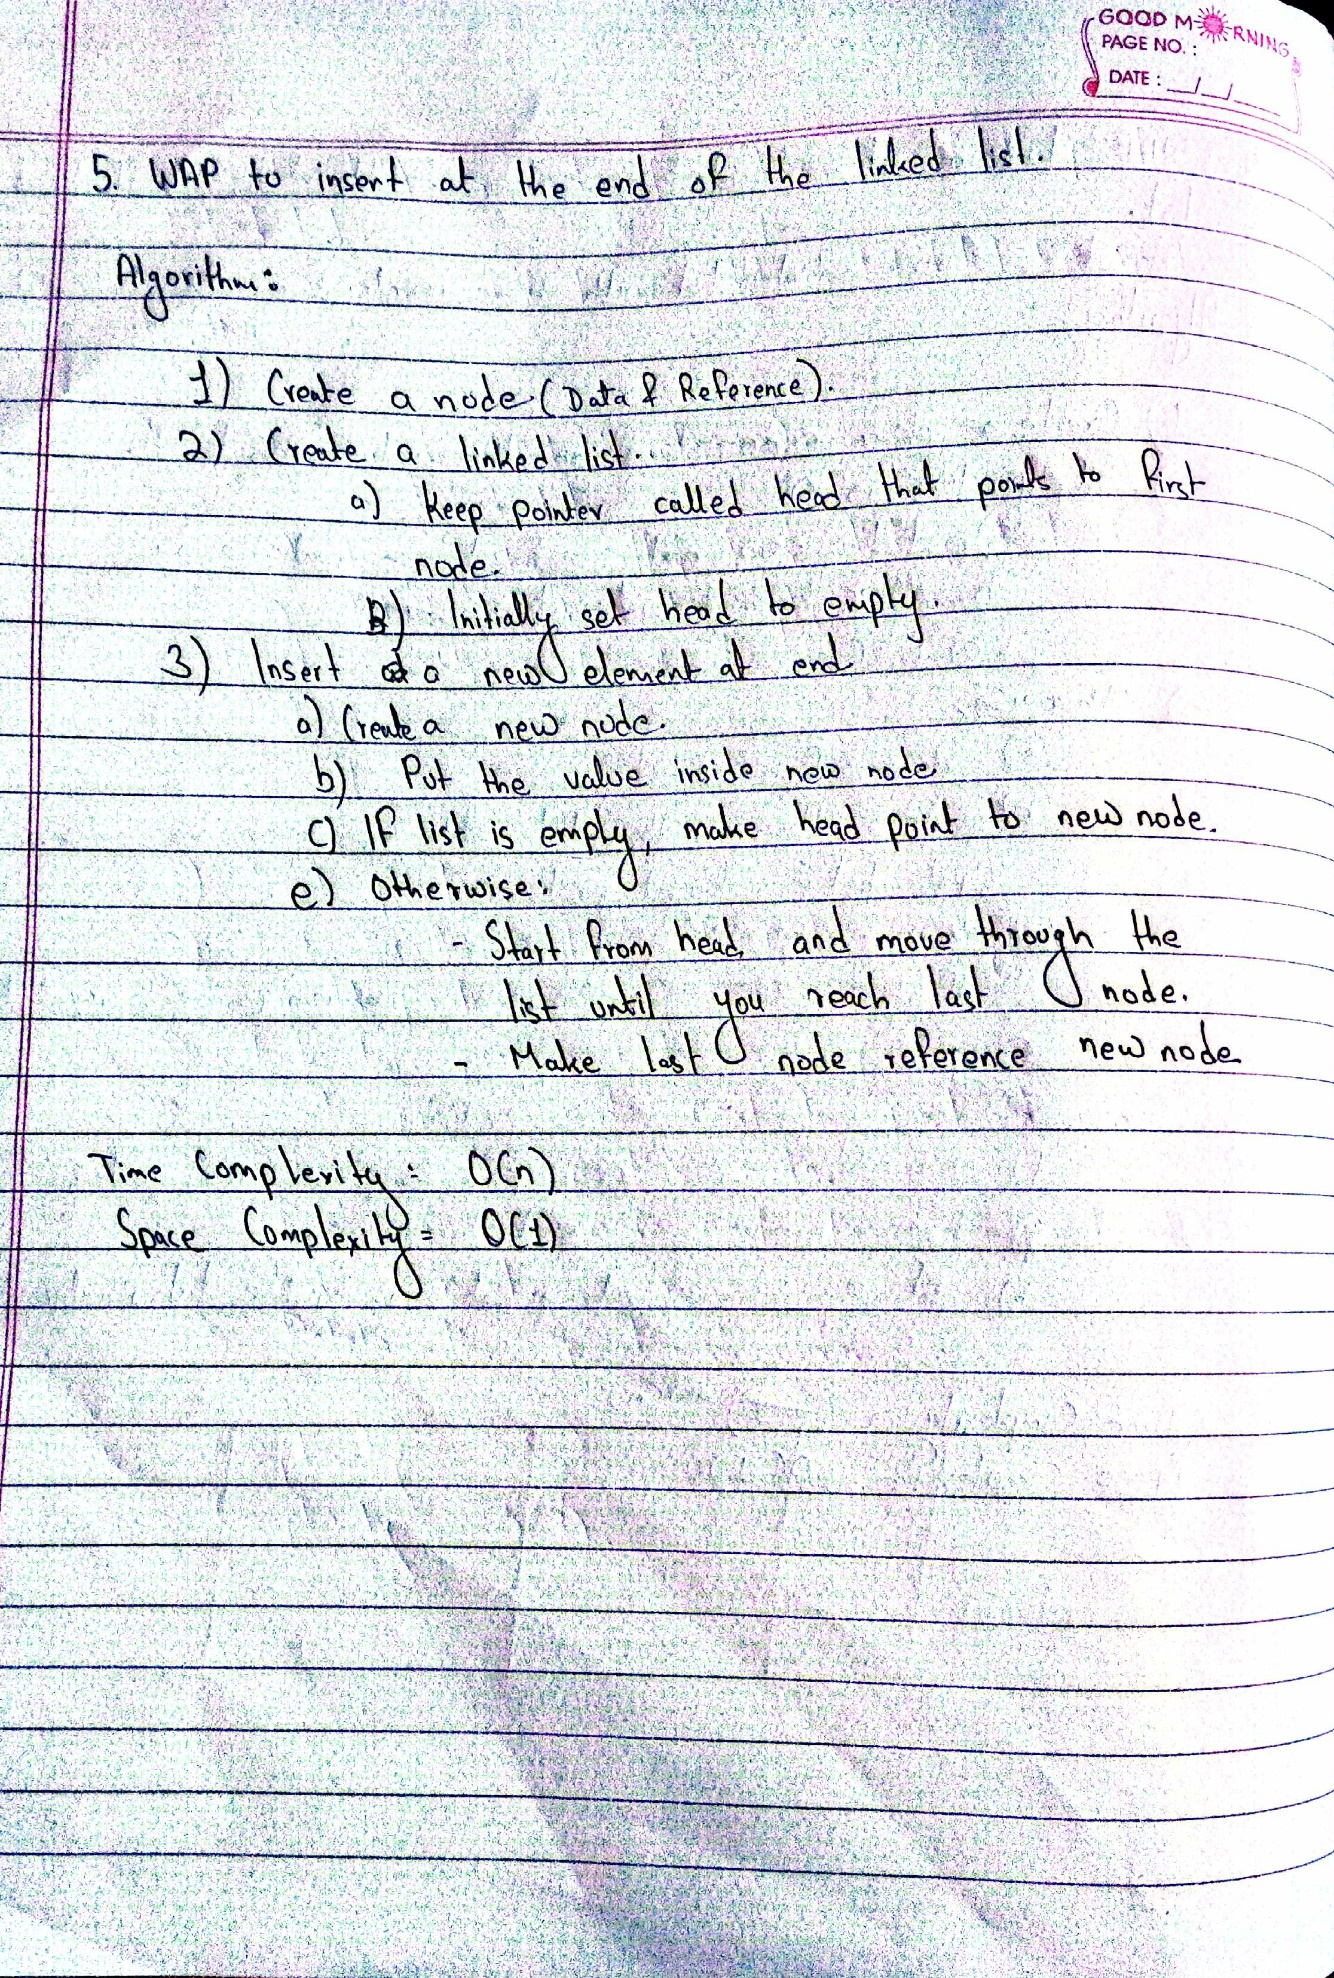 GOOD MORNING
PAGE NO. :
DATE : __/__/__
5. WAP to insert at the end of the linked list.
Algorithm:
1) Create a node (Data & Reference).
2) Create a linked list.
a) Keep pointer called head that points to first
node.
B) Initially set head to empty.
3) Insert a new element at end
a) Create a new node.
b) Put the value inside new node
c) If list is empty, make head point to new node.
e) Otherwise:
- Start from head and move through the
list until you reach last node.
- Make last node reference new node
Time Complexity: O(n)
Space Complexity = O(1)